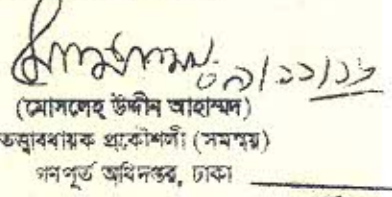 ০৯/১১/১৬
(মোসলেহ উদ্দীন আহাম্মদ)
তত্ত্বাবধায়ক প্রকৌশলী (সমন্বয়)
গণপূর্ত অধিদপ্তর, ঢাকা